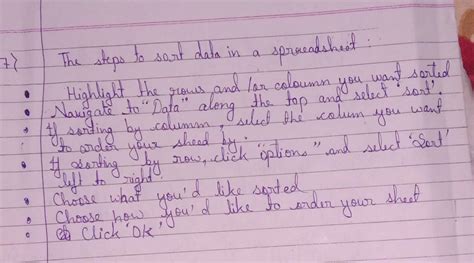 7} The steps to sort data in a spreadsheet :
• Highlight the rows and /or coloumn you want sorted
• Navigate to "Data" along the top and select 'sort'.
• If sorting by columnn, select the column you want
to order your sheed by.
• If sorting by row, click "options" and select 'Sort'
left to right.
• Choose what you'd like sorted
• Choose how you'd like to order your sheet
• Click 'OK'